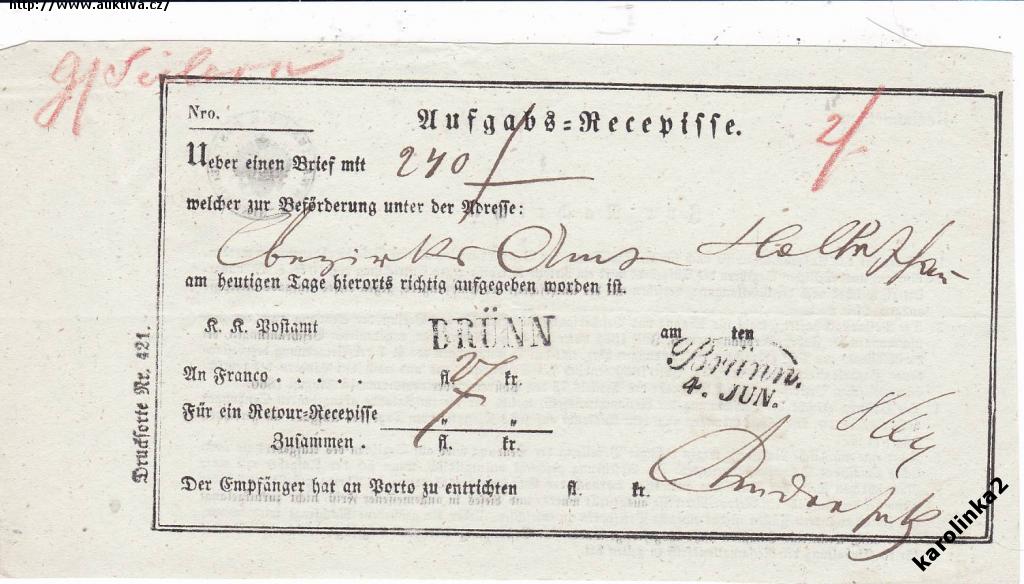 http://www.auktiva.cz/
Nro.
Aufgabs=Recepisse.
2/
Ueber einen Brief mit 240
welcher zur Beförderung unter der Adresse:
Bezirks Amt
am heutigen Tage hierorts richtig aufgegeben worden ist.
K. K. Postamt BRÜNN am ten
Brünn.
4. JUN.
An Franco . . . . . fl. 27 kr.
Für ein Retour=Recepisse " "
Zusammen . fl. kr.
Der Empfänger hat an Porto zu entrichten fl. kr.
Drucksorte Nr. 421.
karolinka2